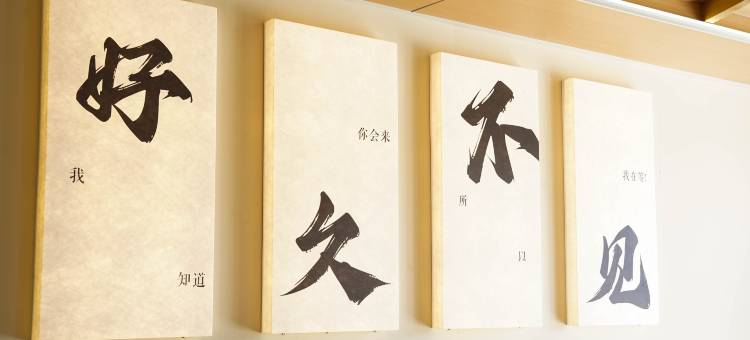 好
我
知道
你会来
久
不
所
以
我在等!
见